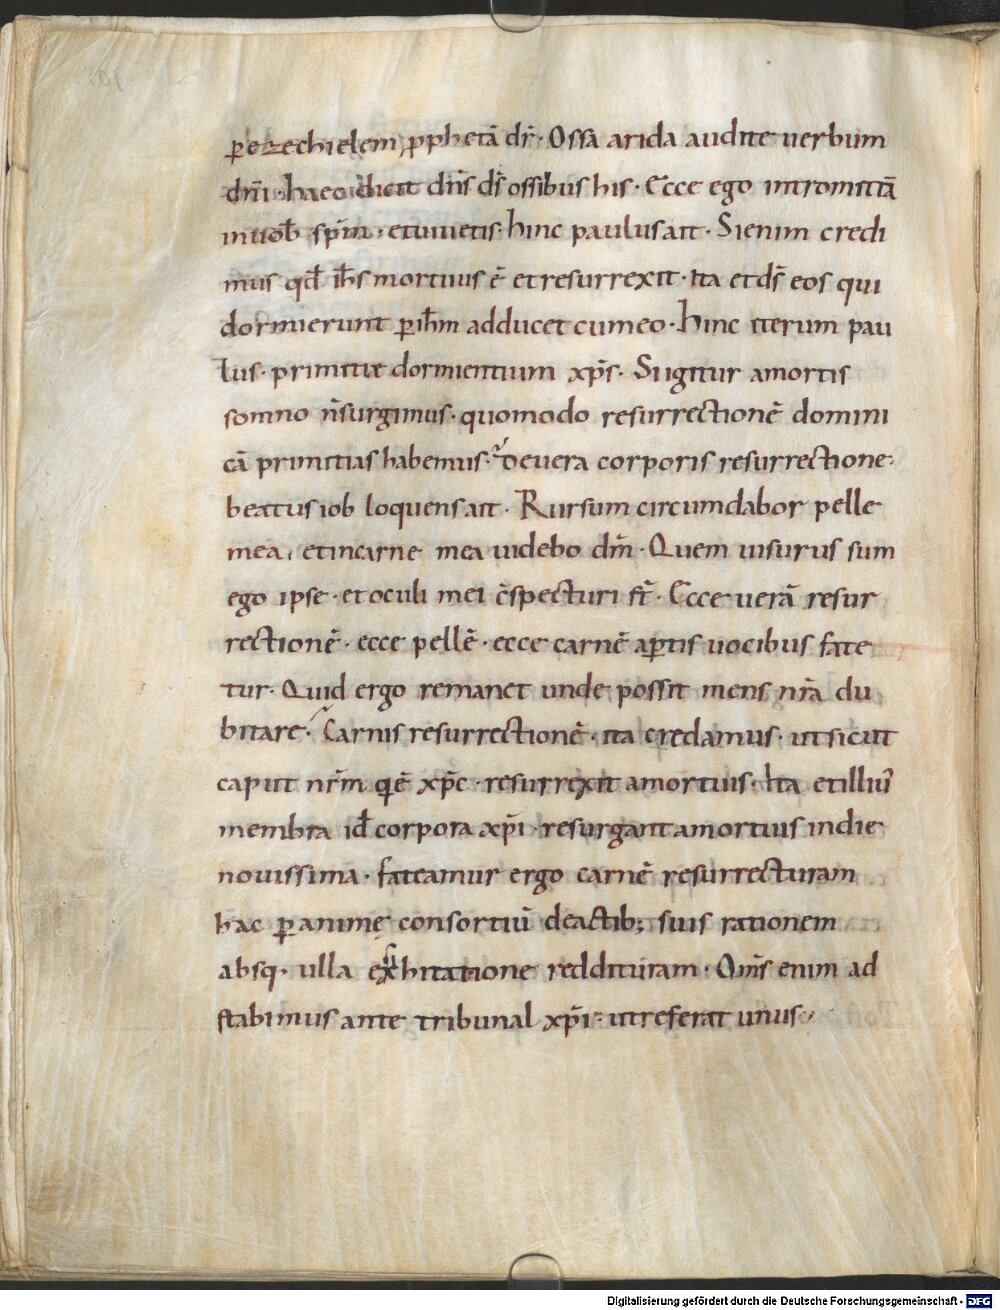 ꝑ ezechielem ꝓphetā dr̄ · Ossa arida audite uerbum
dn̄i · haec dicit dn̄s ds̄ ossibus his · Ecce ego intromittā
in uob̄ sp̄m · et uiuetis · hinc paulus ait · Si enim credi
mus qđ ih̄s mortuus ē et resurrexit · ita et ds̄ eos qui
dormierunt ꝑ ih̄m adducet cum eo · hinc iterum pau
lus · primitiæ dormientium xp̄s · Si igitur a mortis
somno n̄ surgimus · quomodo resurrectionē domini
cā primitias habemus · De uera corporis resurrectione
beatus iob loquens ait · Rursum circumdabor pelle
mea , et in carne mea uidebo dm̄ · Quem uisurus sum
ego ipse · et oculi mei c̄specturi st̄ · Ecce uerā resur
rectionē · ecce pellē · ecce carnē aꝑtis uocibus fate
tur · Quid ergo remanet unde possit mens nr̄a du
bitare · Carnis resurrectionē · ita credamus · ut sicut
caput nr̄m qđ ē xp̄c · resurrexit a mortuis · Ita et illiuˀ
membra iđ corpora xp̄i · resurgant a mortuis in die
nouissima · fateamur ergo carnē resurrecturam
hac ꝑ animę consortiū de actib; suis rationem
absq· ulla exhitatione reddituram · Om̄s enim ad
stabimus ante tribunal xp̄i · ut referat unus
Digitalisierung gefördert durch die Deutsche Forschungsgemeinschaft - DFG